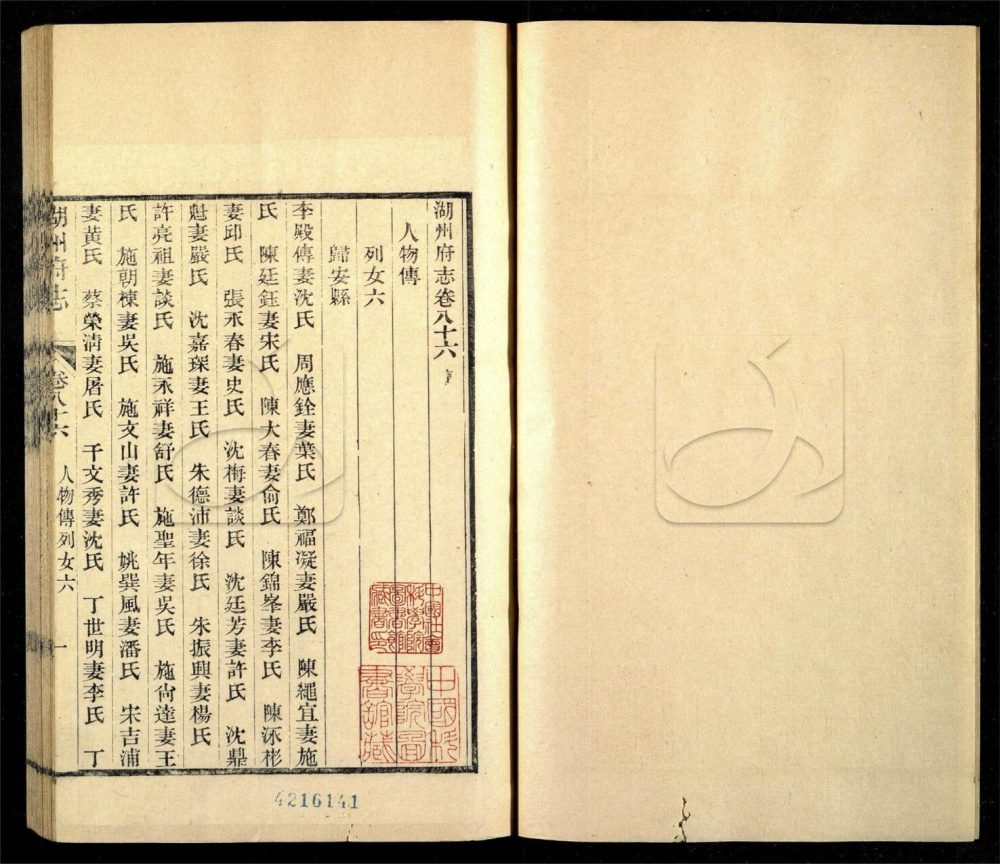 湖州府志卷八十六
人物傳
列女六
歸安縣
李殿傳妻沈氏 周應銓妻葉氏 鄭福凝妻嚴氏 陳繩宜妻施
氏 陳廷鈺妻宋氏 陳大春妻俞氏 陳錦峯妻李氏 陳沠彬
妻邱氏 張永春妻史氏 沈梅妻談氏 沈廷芳妻許氏 沈鼎
魁妻嚴氏 沈嘉琛妻王氏 朱德沛妻徐氏 朱振興妻楊氏
許亮祖妻談氏 施永祥妻舒氏 施聖年妻吳氏 施尙達妻王
氏 施朝棟妻吳氏 施文山妻許氏 姚巽風妻潘氏 宋吉浦
妻黃氏 蔡榮淸妻屠氏 千文秀妻沈氏 丁世明妻李氏 丁
湖州府志 卷八十六 人物傳列女六 一
中國社會科學院圖書館藏書印
中國科學院圖書館藏
4216141